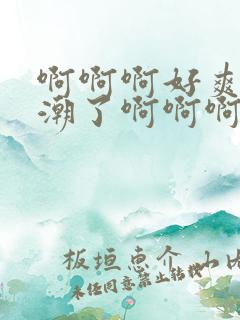 啊啊啊好爽
潮了啊啊啊
板垣恵介 山内
未任同意禁止转载